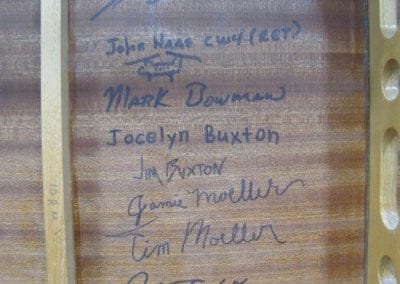 John Haas CW4 (RET)
Mark Bowman
Jocelyn Buxton
Jim Buxton
Jamie Moeller
Tim Moeller